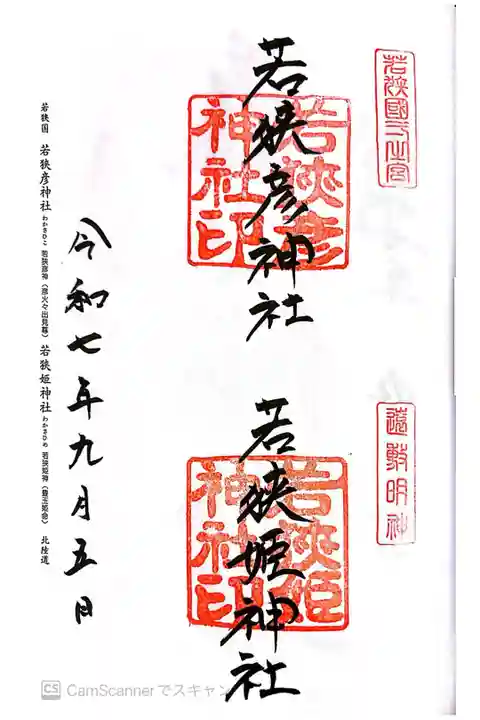 若狭國一之宮
遠敷明神
若狭彦神社
若狭彦神社印
若狭姫神社
若狭姫神社印
令和七年九月五日
若狭国 若狭彦神社 わかさひこ 若狭彦神(彦火々出見尊) 若狭姫神社 わかさひめ 若狭姫神(豊玉姫命) 北陸道
CS CamScannerでスキャン